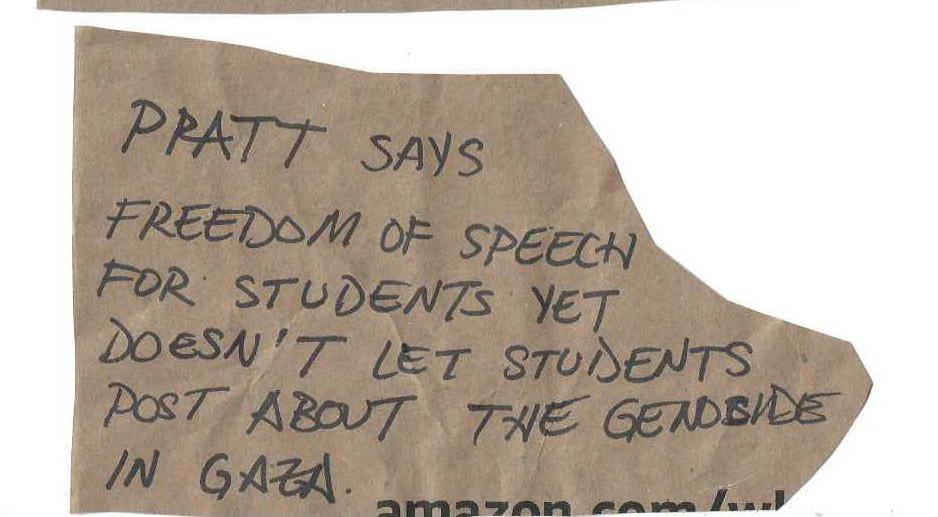 PRATT SAYS
FREEDOM OF SPEECH
FOR STUDENTS YET
DOESN'T LET STUDENTS
POST ABOUT THE GENOCIDE
IN GAZA.
amazon.com/